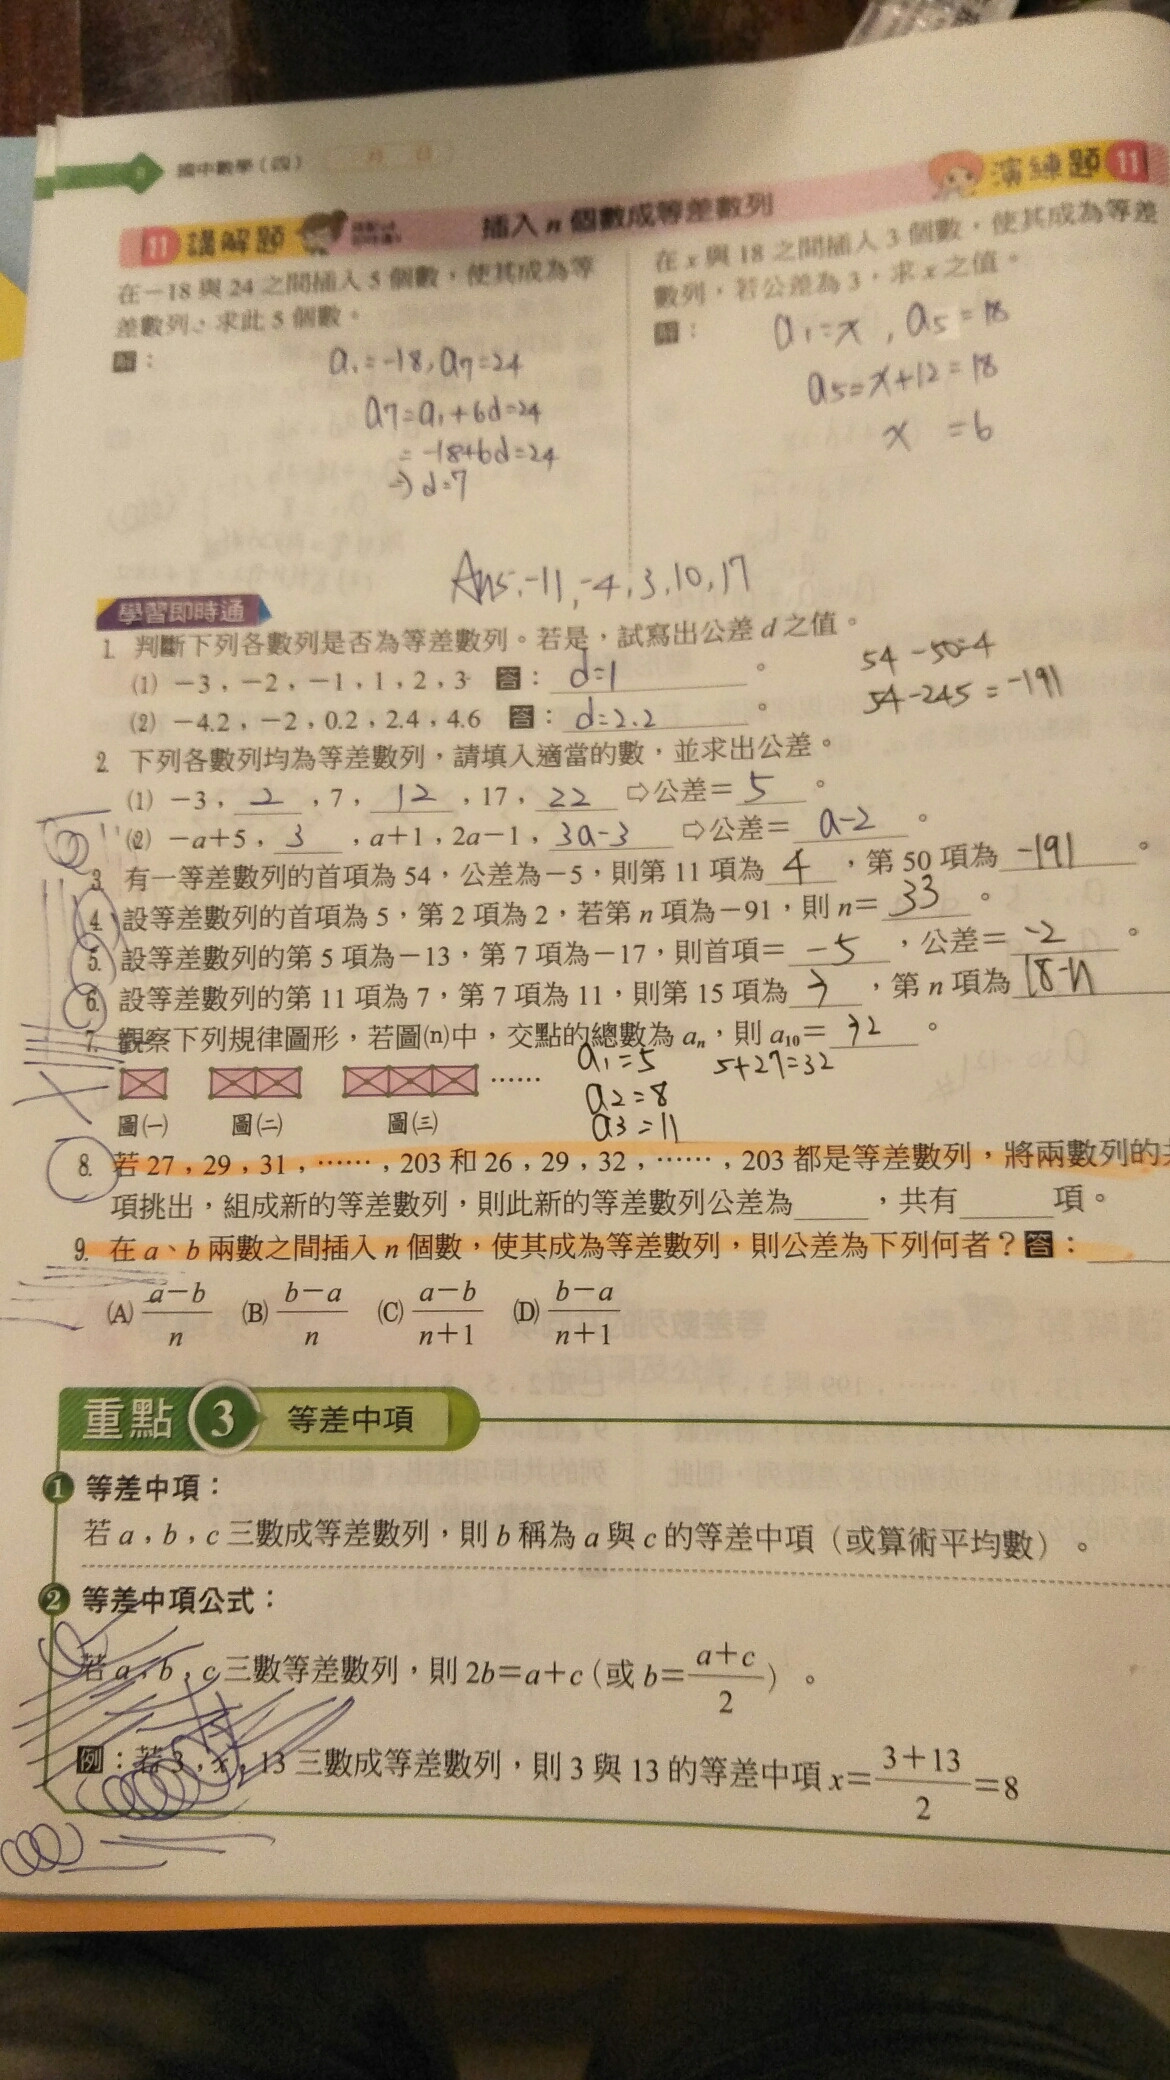 8 國中數學（四） 月 日
11 講解題 插入 n 個數成等差數列 演練題 11
在－18 與 24 之間插入 5 個數，使其成為等
差數列，求此 5 個數。
解：
a₁=-18, a₇=24
a₇=a₁+6d=24
=-18+6d=24
⇒ d=7
Ans: -11, -4, 3, 10, 17
在 x 與 18 之間插入 3 個數，使其成為等差
數列，若公差為 3，求 x 之值。
解：
a₁=x, a₅=18
a₅=x+12=18
x =6
學習即時通
1. 判斷下列各數列是否為等差數列。若是，試寫出公差 d 之值。
(1) －3，－2，－1，1，2，3 答：d=1。
(2) －4.2，－2，0.2，2.4，4.6 答：d=2.2。
54-50=4
54-245=-191
2. 下列各數列均為等差數列，請填入適當的數，並求出公差。
(1) －3，2，7，12，17，22 ⇨公差＝5。
(2) －a＋5，3，a＋1，2a－1，3a-3 ⇨公差＝a-2。
3. 有一等差數列的首項為 54，公差為－5，則第 11 項為 4，第 50 項為 -191。
4. 設等差數列的首項為 5，第 2 項為 2，若第 n 項為－91，則 n＝33。
5. 設等差數列的第 5 項為－13，第 7 項為－17，則首項＝-5，公差＝-2。
6. 設等差數列的第 11 項為 7，第 7 項為 11，則第 15 項為 3，第 n 項為 18-n
7. 觀察下列規律圖形，若圖(n)中，交點的總數為 aₙ，則 a₁₀＝32。
a₁=5 5+27=32
a₂=8
a₃=11
……
圖(一) 圖(二) 圖(三)
8. 若 27，29，31，……，203 和 26，29，32，……，203 都是等差數列，將兩數列的
項挑出，組成新的等差數列，則此新的等差數列公差為_____，共有_____項。
9. 在 a、b 兩數之間插入 n 個數，使其成為等差數列，則公差為下列何者？答：
(A) (a－b)/n (B) (b－a)/n (C) (a－b)/(n＋1) (D) (b－a)/(n＋1)
重點 3 等差中項
1 等差中項：
若 a，b，c 三數成等差數列，則 b 稱為 a 與 c 的等差中項（或算術平均數）。
2 等差中項公式：
若 a，b，c 三數等差數列，則 2b＝a＋c（或 b＝(a＋c)/2）。
例：若 3，x，13 三數成等差數列，則 3 與 13 的等差中項 x＝(3＋13)/2＝8